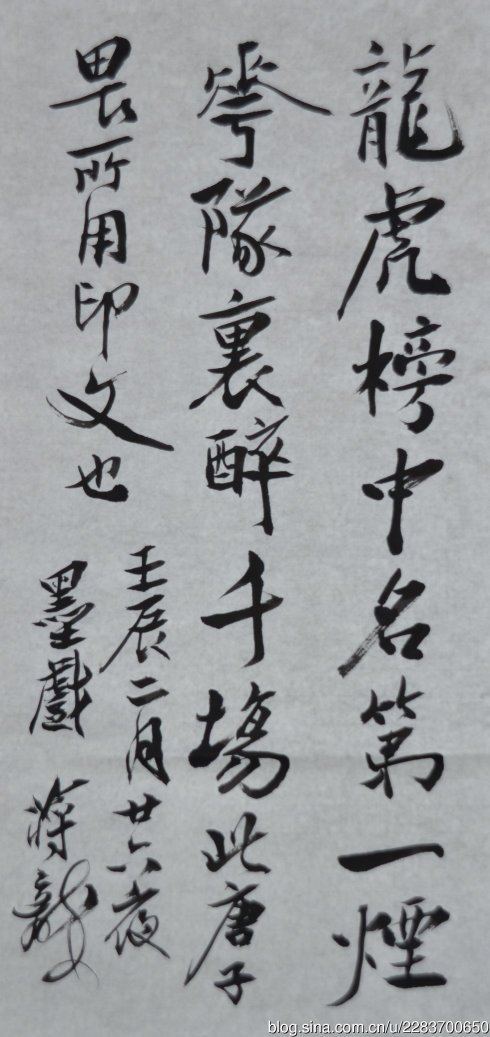 龍虎榜中名第一煙
花隊裏醉千場此唐子
畏所用印文也
壬辰二月廿六夜
墨戲 蔣龍
blog.sina.com.cn/u/2283700650